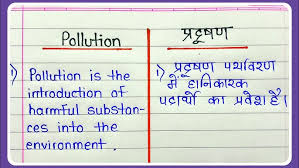 Pollution
प्रदूषण
1) Pollution is the
introduction of
harmful substan-
ces into the
environment.
1) प्रदूषण पर्यावरण
में हानिकारक
पदार्थों का प्रवेश है।